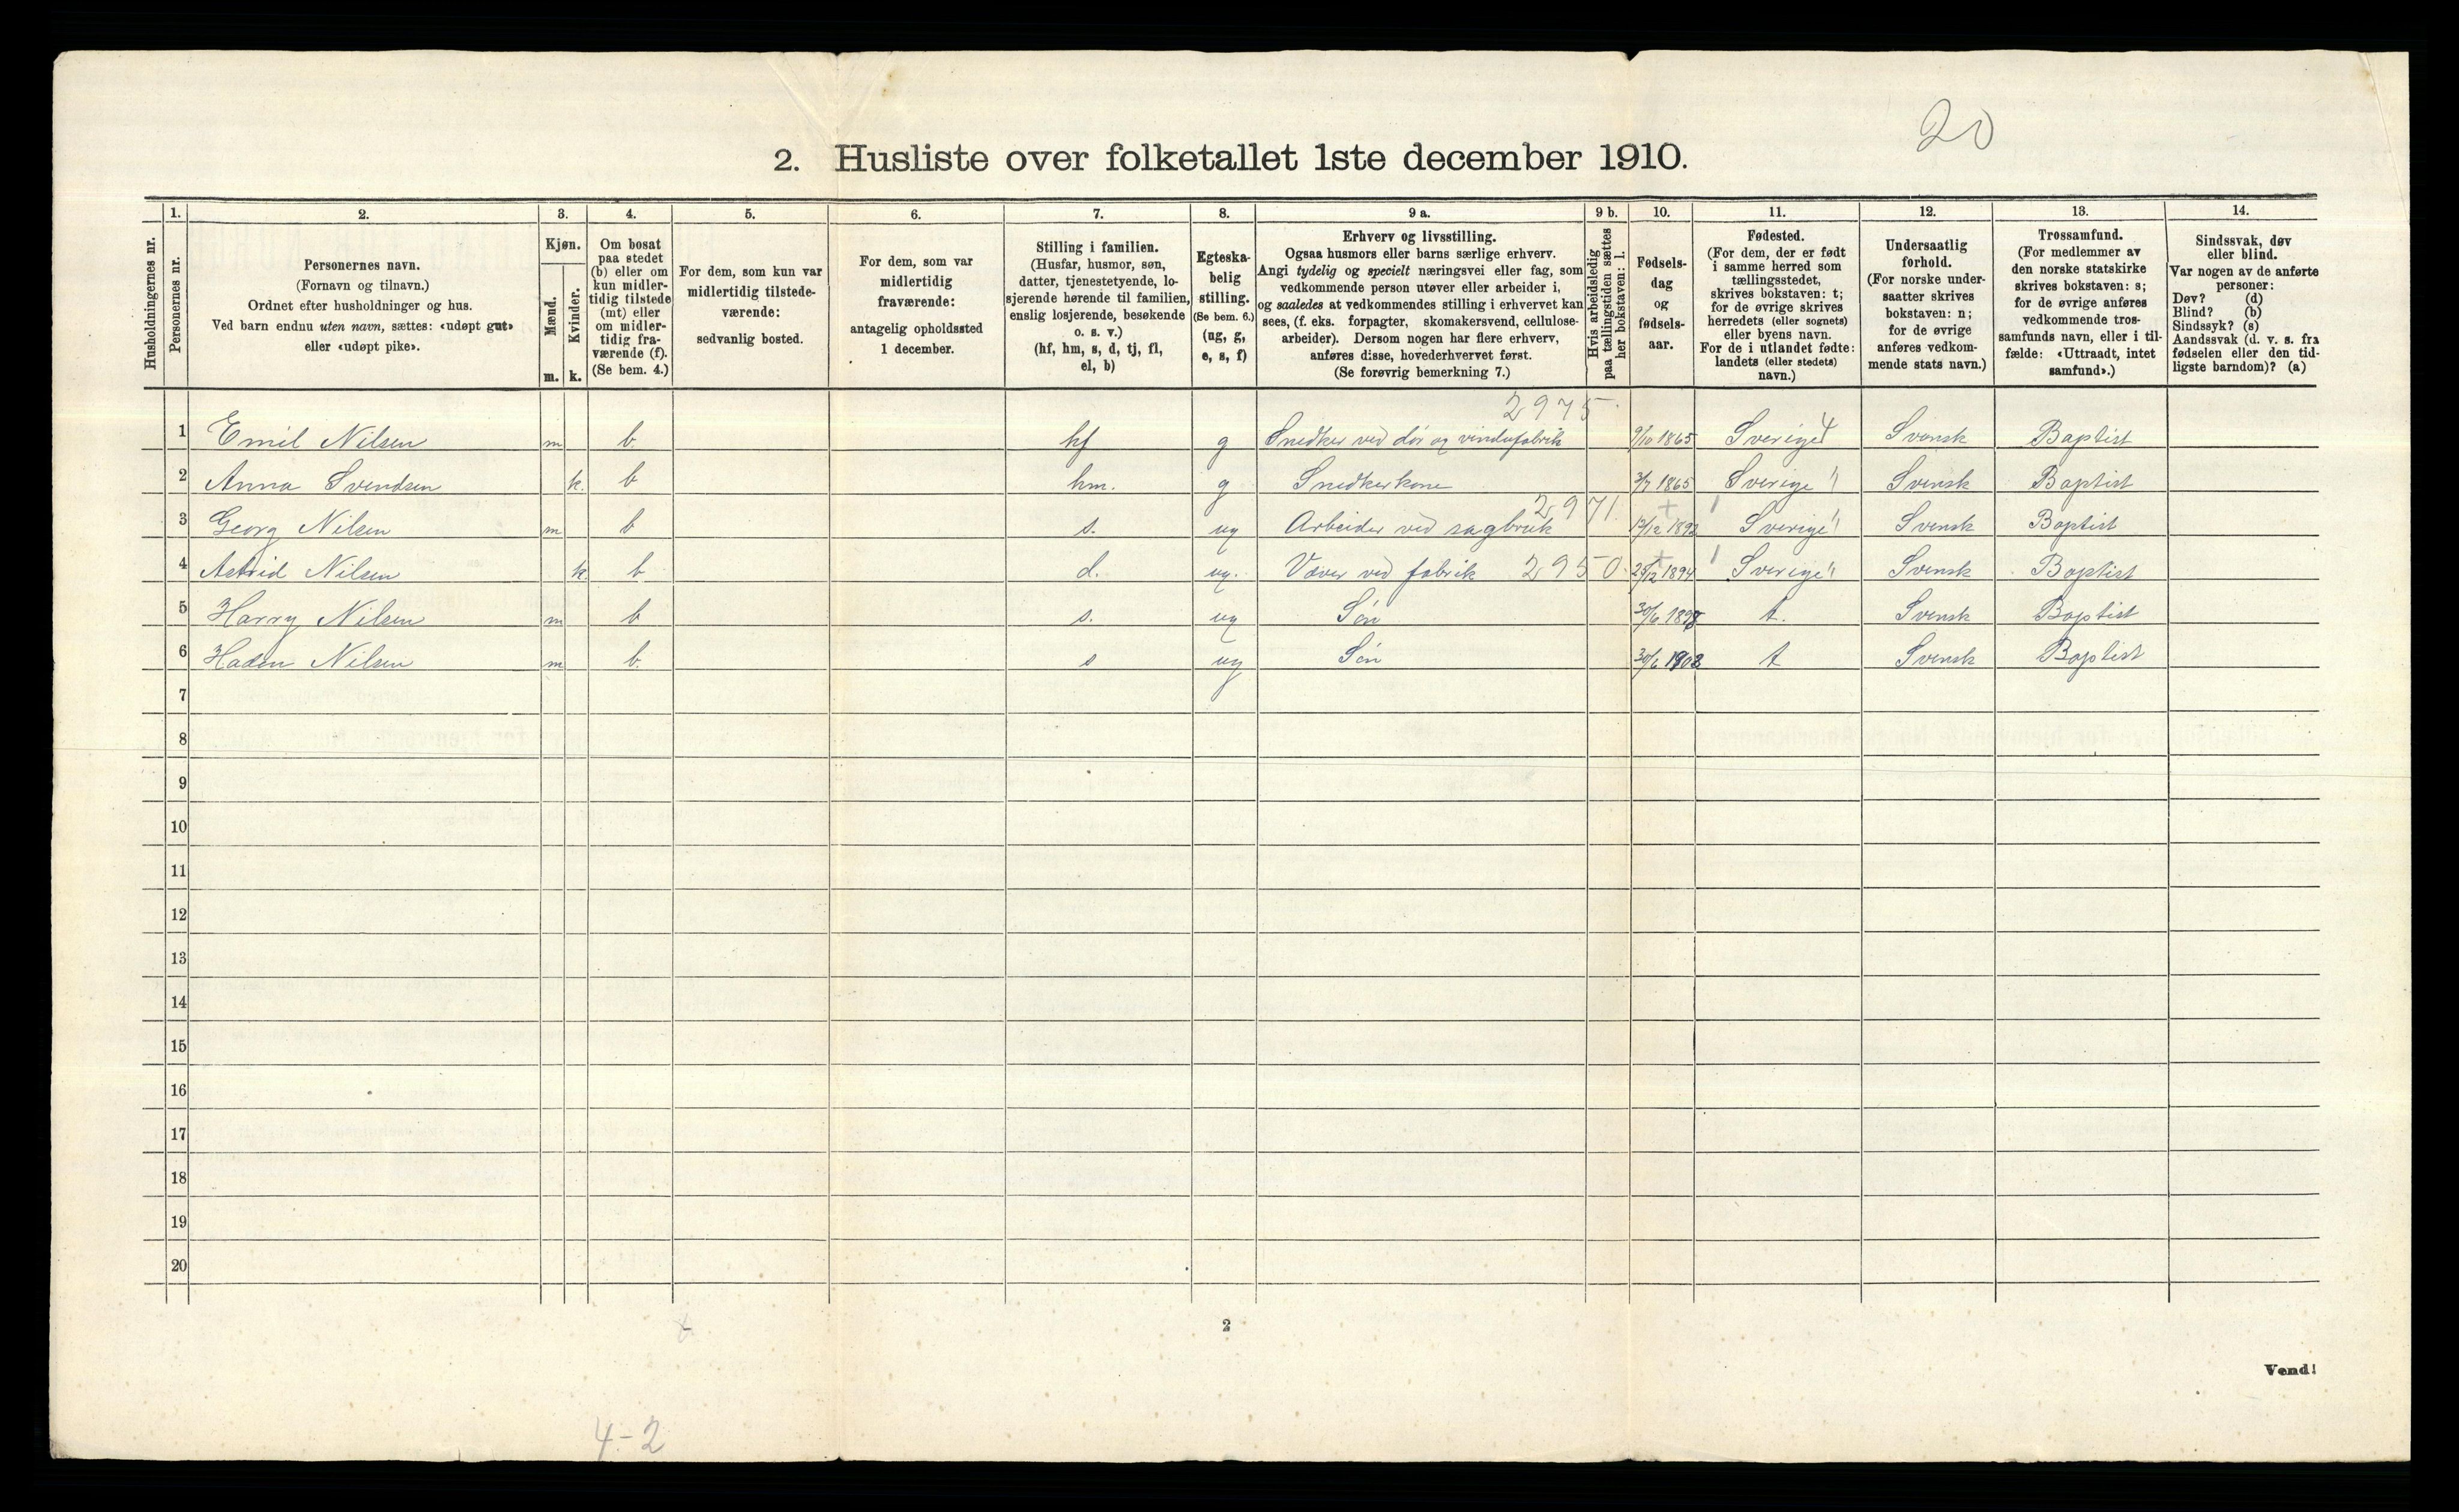 20
2. Husliste over folketallet 1ste december 1910.
Husholdningernes nr.
1.
Personernes nr.
2.
Personernes navn.
(Fornavn og tilnavn.)
Ordnet efter husholdninger og hus.
Ved barn endnu uten navn, sættes: «udøpt gut»
eller «udøpt pike».
3.
Kjøn.
Mænd.
m.
Kvinder.
k.
4.
Om bosat
paa stedet
(b) eller om
kun midler-
tidig tilstede
(mt) eller
om midler-
tidig fra-
værende (f).
(Se bem. 4.)
5.
For dem, som kun var
midlertidig tilstede-
værende:
sedvanlig bosted.
6.
For dem, som var
midlertidig
fraværende:
antagelig opholdssted
1 december.
7.
Stilling i familien.
(Husfar, husmor, søn,
datter, tjenestetyende, lo-
sjerende hørende til familien,
enslig losjerende, besøkende
o. s. v.)
(hf, hm, s, d, tj, fl,
el, b)
8.
Egteska-
belig
stilling.
(Se bem. 6.)
(ug, g,
e, s, f)
9 a.
Erhverv og livsstilling.
Ogsaa husmors eller barns særlige erhverv.
Angi tydelig og specielt næringsvei eller fag, som
vedkommende person utøver eller arbeider i,
og saaledes at vedkommendes stilling i erhvervet kan
sees, (f. eks. forpagter, skomakersvend, cellulose-
arbeider). Dersom nogen har flere erhverv,
anføres disse, hovederhvervet først.
(Se forøvrig bemerkning 7.)
9 b.
Hvis arbeidsledig
paa tællingstiden sættes
her bokstaven: l.
10.
Fødsels-
dag
og
fødsels-
aar.
11.
Fødested.
(For dem, der er født
i samme herred som
tællingsstedet,
skrives bokstaven: t;
for de øvrige skrives
herredets (eller sognets)
eller byens navn.
For de i utlandet fødte:
landets (eller stedets)
navn.)
12.
Undersaatlig
forhold.
(For norske under-
saatter skrives
bokstaven: n;
for de øvrige
anføres vedkom-
mende stats navn.)
13.
Trossamfund.
(For medlemmer av
den norske statskirke
skrives bokstaven: s;
for de øvrige anføres
vedkommende tros-
samfunds navn, eller i til-
fælde: «Uttraadt, intet
samfund».)
14.
Sindssvak, døv
eller blind.
Var nogen av de anførte
personer:
Døv? (d)
Blind? (b)
Sindssyk? (s)
Aandssvak (d. v. s. fra
fødselen eller den tid-
ligste barndom)? (a)
2975
1 Emil Nilsen m b. hf g Snedker ved dør og vindufabrik 9/10 1865 Sverige 4 Svensk Baptist
2 Anna Svendsen k. b hm. g Snedkerkone 3/7 1865 Sverige " Svensk Baptist
2971.
3 Georg Nilsen m b s. ug Arbeider ved sagbruk 13/12 1892 Sverige " Svensk Baptist
4 Astrid Nilsen k. b d. ug. Væver ved fabrik 2950. /12 1894 Sverige " Svensk Baptist
5 Harry Nilsen m b s. ug Søn 30/6 1898 t. Svensk Baptist
6 Nilsen m b. s ug Søn 30/6 1908 t Svensk Baptist
7
8
9
10
11
12
13
14
15
16
17
18
19
20
2
Vend!
4-2